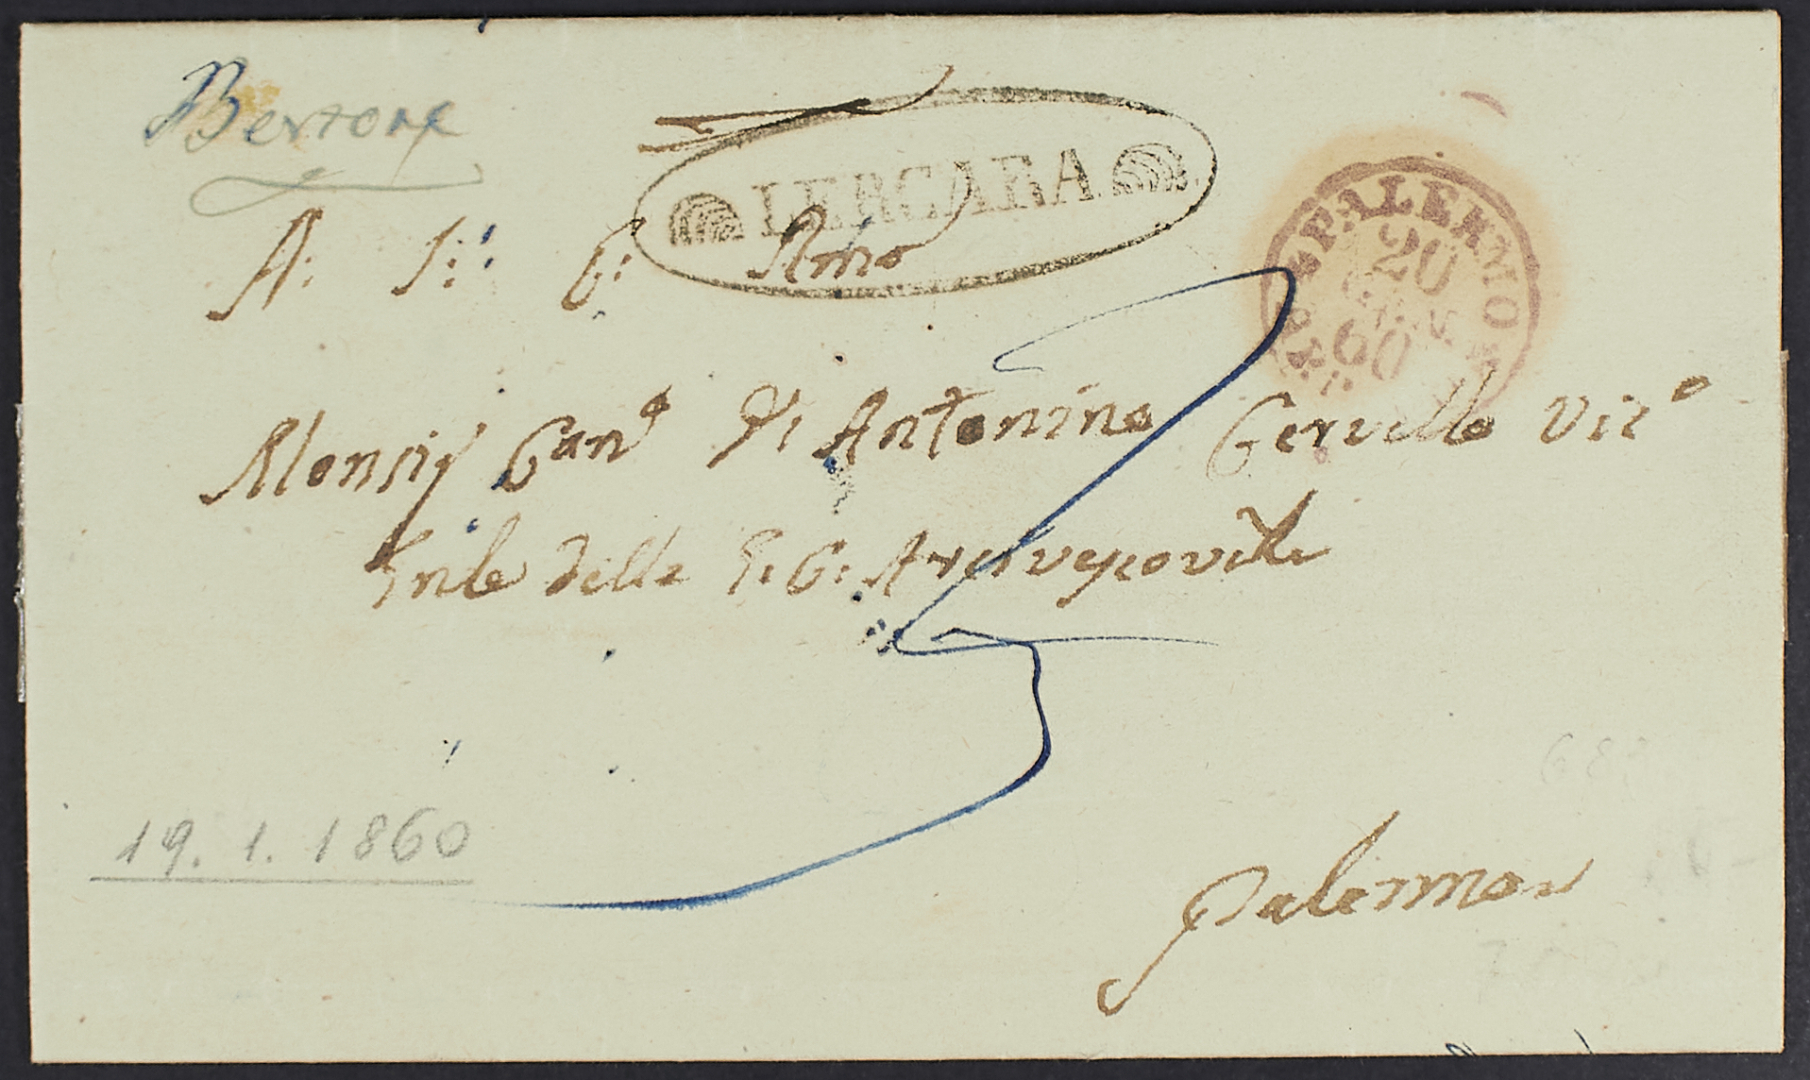 Bertone
LERCARA
A: S:: E: Rmo
PALERMO
20
GEN
60
Monsig Can.º Di Antonino Cervello Vic.º
Gnle della G: C: Arcivescovile
Palermo
19. 1. 1860